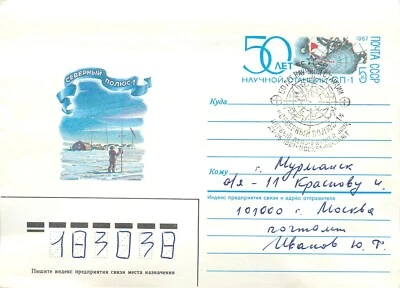 СЕВЕРНЫЙ ПОЛЮС-1
50 ЛЕТ
НАУЧНОЙ СТАНЦИИ СП-1
1987
ПОЧТА СССР
Куда
г. Мурманск
Кому
а/я - 11 Краснову И.
Индекс предприятия связи и адрес отправителя
101000 г. Москва
почтамт
Иванов Ю. Т.
183038
Пишите индекс предприятия связи места назначения